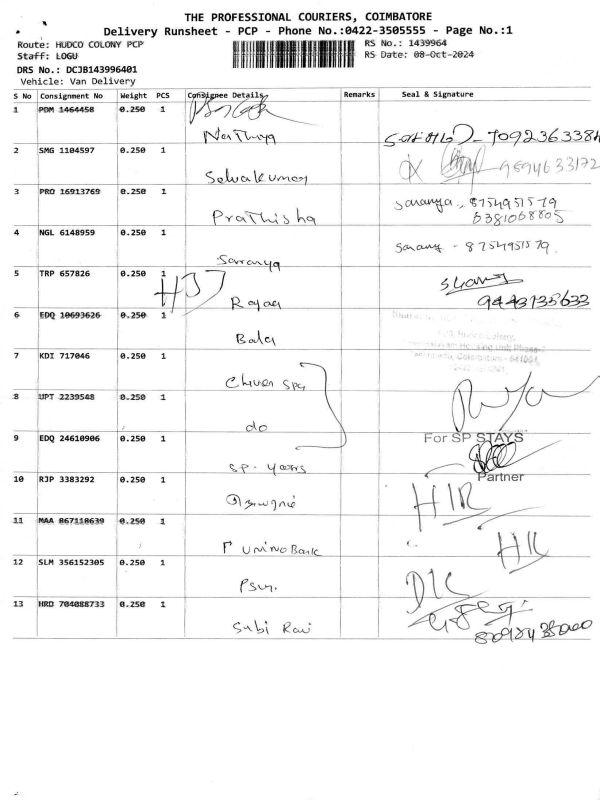 THE PROFESSIONAL COURIERS, COIMBATORE
Delivery Runsheet - PCP - Phone No.:0422-3505555 - Page No.:1
Route: HUDCO COLONY PCP
RS No.: 1439964
Staff: LOGU
RS Date: 08-Oct-2024
DRS No.: DCJB143996401
Vehicle: Van Delivery
S No Consignment No Weight PCS Consignee Details Remarks Seal & Signature
1 PDM 1464458 0.250 1
Nathiya 7092363384
2 SMG 1104597 0.250 1
Selvakumar 9594633172
3 PRO 16913769 0.250 1
Prathisha Saranya 8754951579
6381068805
4 NGL 6148959 0.250 1
Saranya Sarany - 8754951579
5 TRP 657826 0.250 1
Rajaa 9443135633
6 EDQ 10693626 0.250 1
Bala
7 KDI 717046 0.250 1
spa
8 UPT 2239548 0.250 1
do
9 EDQ 24610906 0.250 1
For SP STAYS
SP.
Partner
10 RJP 3383292 0.250 1
11 MAA 867118639 0.250 1
Union Bank
12 SLM 356152305 0.250 1
13 HRD 704088733 0.250 1
Subi Ravi